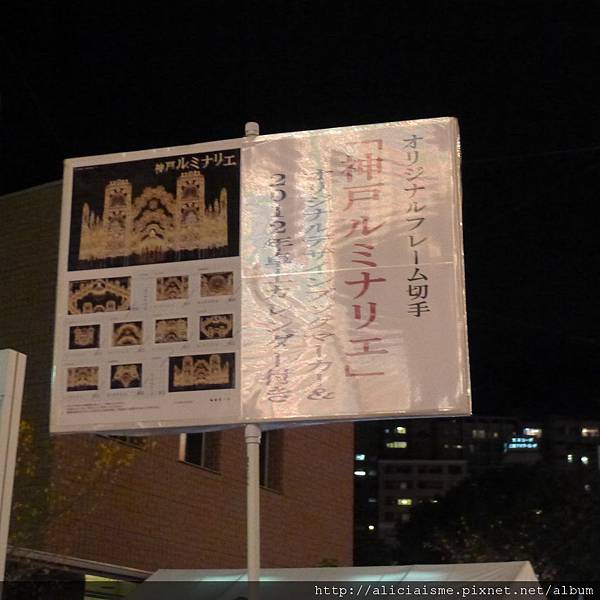 神戸ルミナリエ
オリジナルフレーム切手
「神戸ルミナリエ」
オリジナルデザインブックマーカー&
2012年卓上カレンダー付き
http://aliciaisme.pixnet.net/album